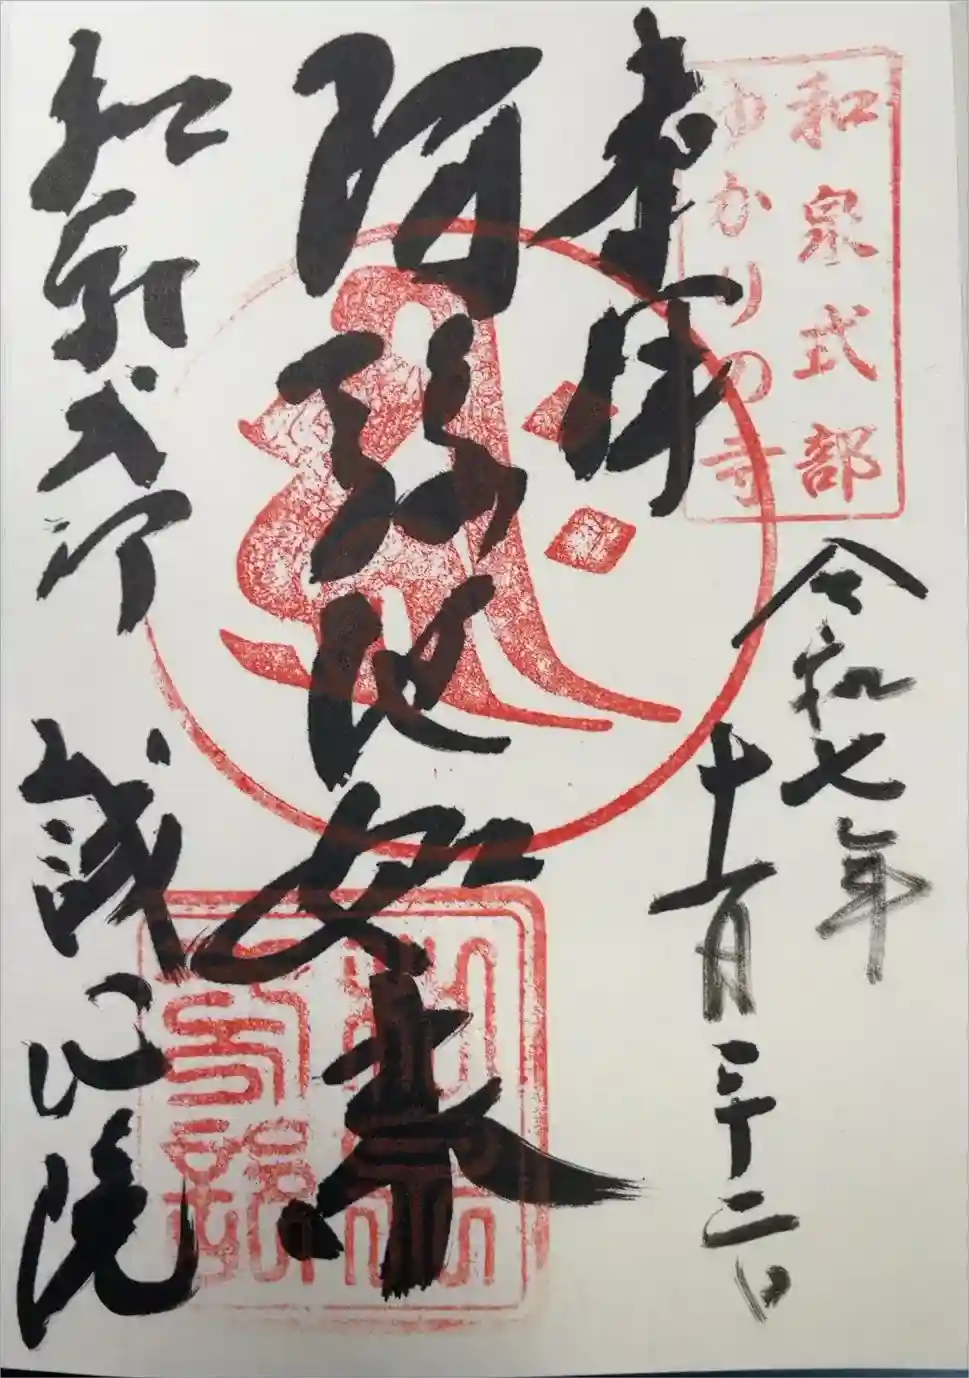 和泉式部
ゆかりの寺
奉拝
令和七年
十一月二十二日
阿弥陀如来
和泉式部
誠心院